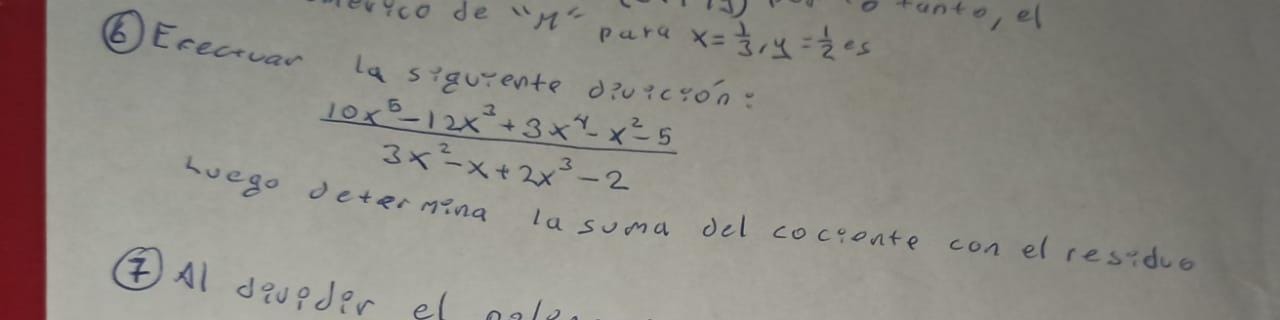 de "M" para x = 1/3, y = 1/2 es
⑥ Efectuar la siguiente división:
10x⁵ - 12x³ + 3x⁴ - x² - 5
3x² - x + 2x³ - 2
Luego determina la suma del cociente con el residuo
⑦ Al dividir el